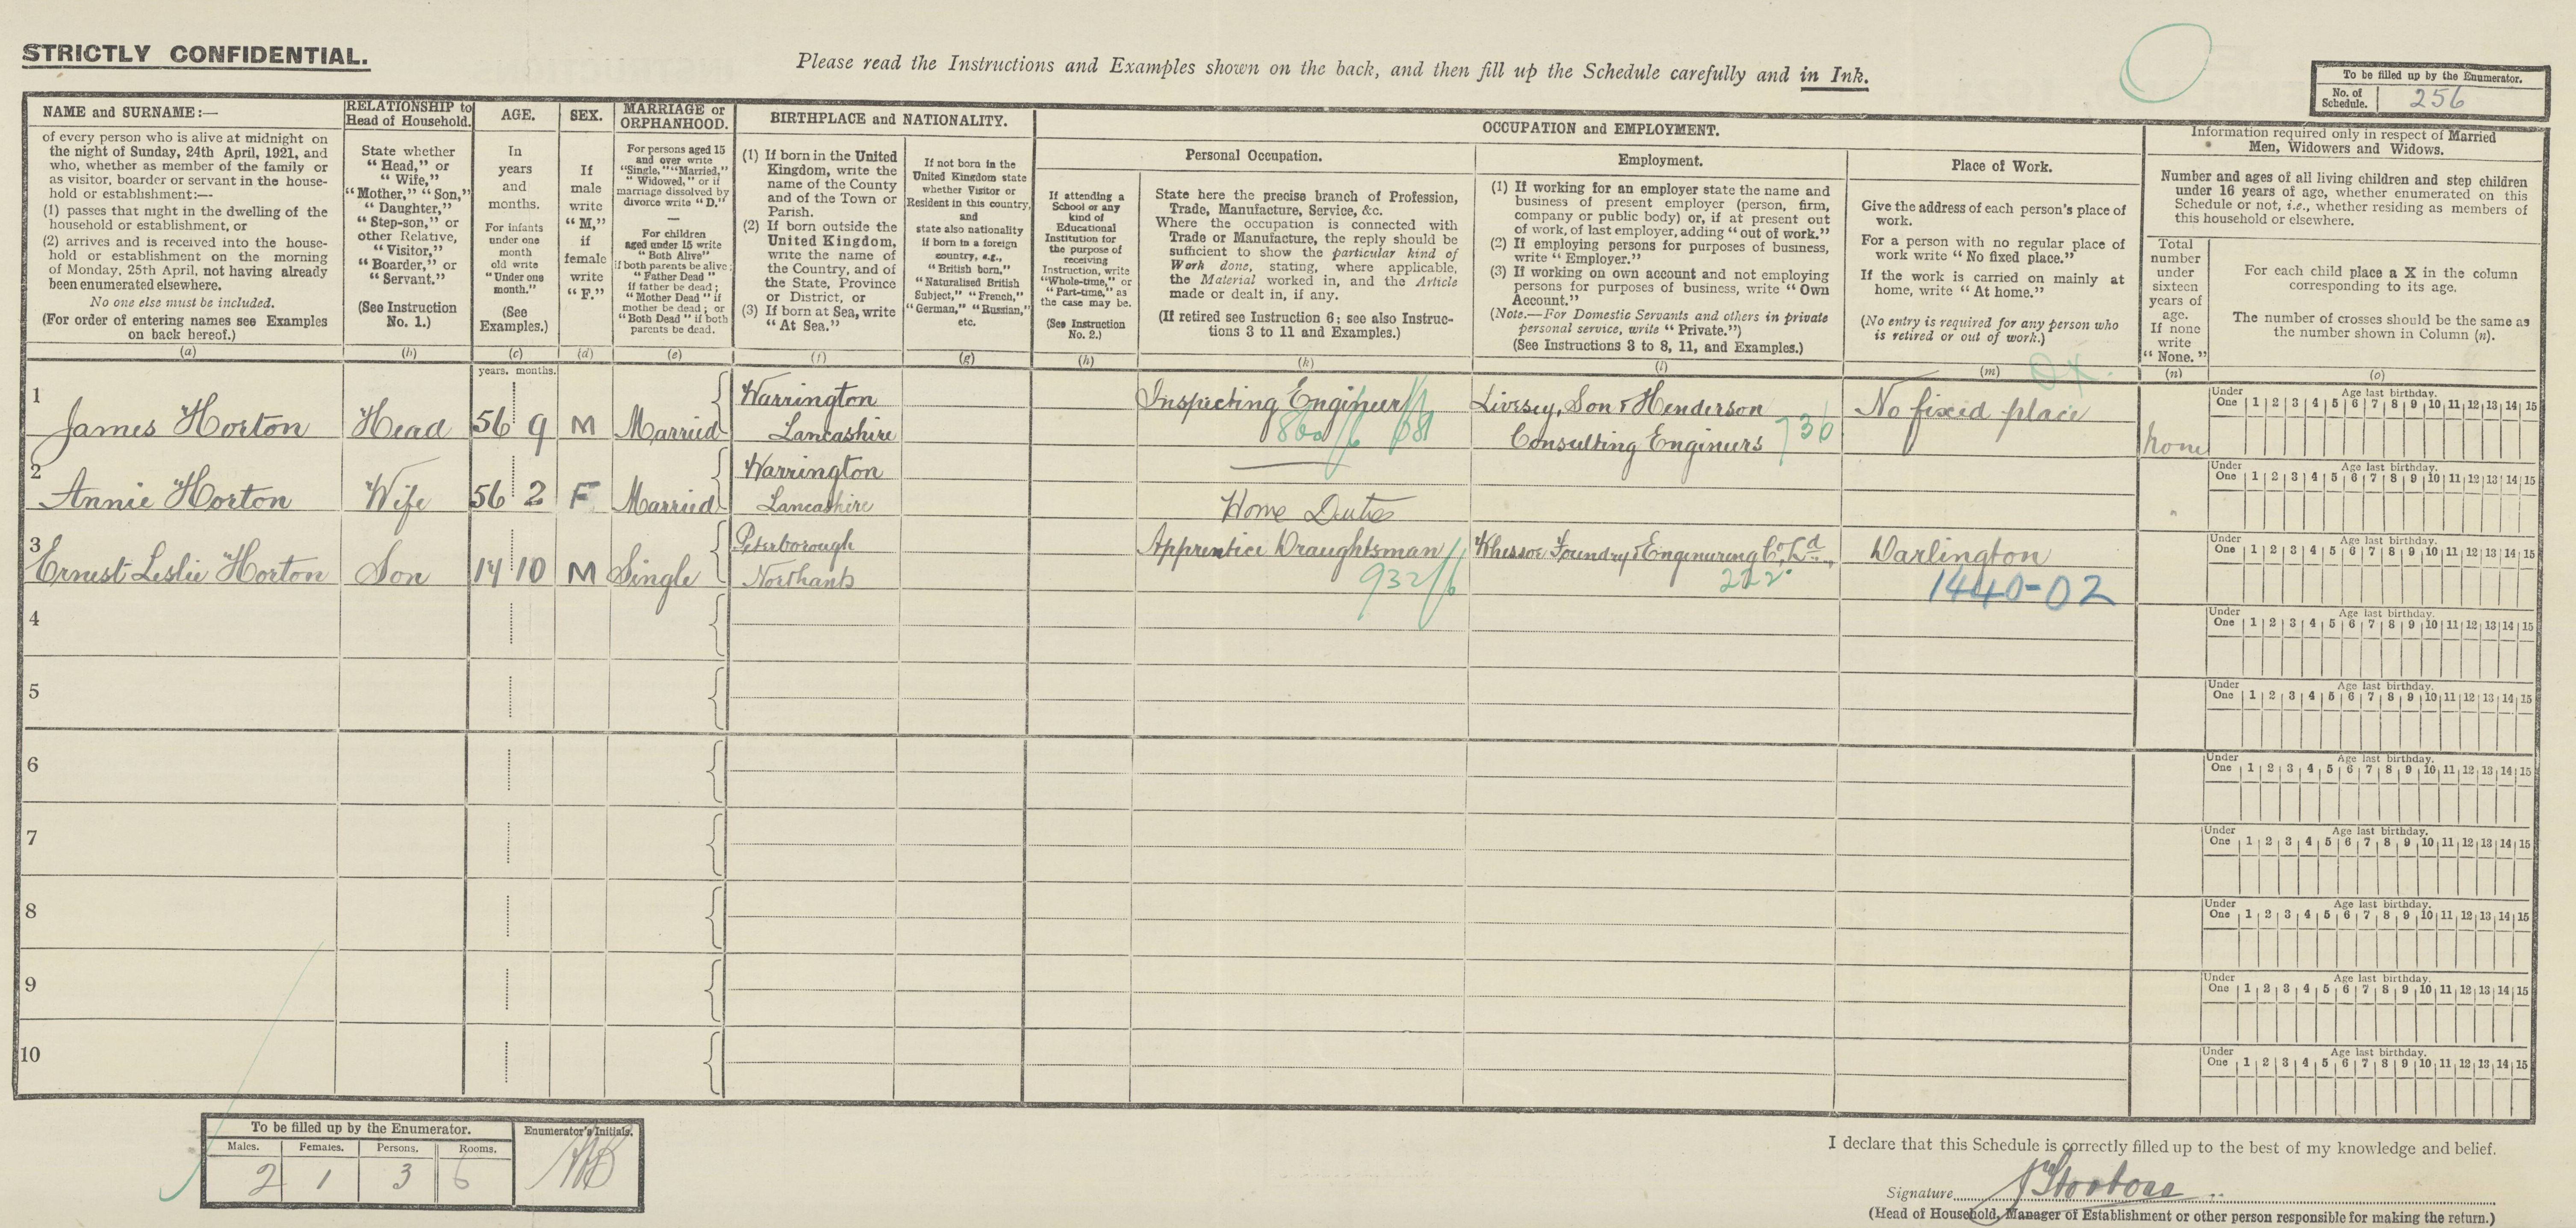 STRICTLY CONFIDENTIAL.
Please read the Instructions and Examples shown on the back, and then fill up the Schedule carefully and in Ink.
To be filled up by the Enumerator.
No. of Schedule. 256
NAME and SURNAME:—
of every person who is alive at midnight on
the night of Sunday, 24th April, 1921, and
who, whether as member of the family or
as visitor, boarder or servant in the house-
hold or establishment:—
(1) passes that night in the dwelling of the
household or establishment, or
(2) arrives and is received into the house-
hold or establishment on the morning
of Monday, 25th April, not having already
been enumerated elsewhere.
No one else must be included.
(For order of entering names see Examples
on back hereof.)
(a)
RELATIONSHIP to
Head of Household.
State whether
"Head," or
"Wife,"
"Mother," "Son,"
"Daughter,"
"Step-son," or
other Relative,
"Visitor,"
"Boarder," or
"Servant."
(See Instruction
No. 1.)
(b)
AGE.
In
years
and
months.
For infants
under one
month
old write
"Under one
month."
(See
Examples.)
(c)
SEX.
If
male
write
"M,"
if
female
write
"F."
(d)
MARRIAGE or
ORPHANHOOD.
For persons aged 15
and over write
"Single," "Married,"
"Widowed," or if
marriage dissolved by
divorce write "D."
—
For children
aged under 15 write
"Both Alive"
if both parents be alive;
"Father Dead"
if father be dead;
"Mother Dead" if
mother be dead; or
"Both Dead" if both
parents be dead.
(e)
BIRTHPLACE and NATIONALITY.
(1) If born in the United
Kingdom, write the
name of the County
and of the Town or
Parish.
(2) If born outside the
United Kingdom,
write the name of
the Country, and of
the State, Province
or District, or
(3) If born at Sea, write
"At Sea."
(f)
If not born in the
United Kingdom state
whether Visitor or
Resident in this country,
and
state also nationality
if born in a foreign
country, e.g.,
"British born,"
"Naturalised British
Subject," "French,"
"German," "Russian,"
etc.
(g)
OCCUPATION and EMPLOYMENT.
Personal Occupation.
If attending a
School or any
kind of
Educational
Institution for
the purpose of
receiving
Instruction, write
"Whole-time," or
"Part-time," as
the case may be.
(See Instruction
No. 2.)
(h)
State here the precise branch of Profession,
Trade, Manufacture, Service, &c.
Where the occupation is connected with
Trade or Manufacture, the reply should be
sufficient to show the particular kind of
Work done, stating, where applicable,
the Material worked in, and the Article
made or dealt in, if any.
(If retired see Instruction 6; see also Instruc-
tions 3 to 11 and Examples.)
(k)
Employment.
(1) If working for an employer state the name and
business of present employer (person, firm,
company or public body) or, if at present out
of work, of last employer, adding "out of work."
(2) If employing persons for purposes of business,
write "Employer."
(3) If working on own account and not employing
persons for purposes of business, write "Own
Account."
(Note.—For Domestic Servants and others in private
personal service, write "Private.")
(See Instructions 3 to 8, 11, and Examples.)
(l)
Place of Work.
Give the address of each person's place of
work.
For a person with no regular place of
work write "No fixed place."
If the work is carried on mainly at
home, write "At home."
(No entry is required for any person who
is retired or out of work.)
(m)
Information required only in respect of Married
Men, Widowers and Widows.
Number and ages of all living children and step children
under 16 years of age, whether enumerated on this
Schedule or not, i.e., whether residing as members of
this household or elsewhere.
Total
number
under
sixteen
years of
age.
If none
write
"None."
(n)
For each child place a X in the column
corresponding to its age.
The number of crosses should be the same as
the number shown in Column (n).
(o)
years. months.
1
James Horton Head 56 9 M Married Warrington Lancashire
Inspecting Engineer
Livesey, Son & Henderson
Consulting Engineers 736
No fixed place
none
Under One 1 2 3 4 5 6 7 8 9 10 11 12 13 14 15
Age last birthday.
2
Annie Horton Wife 56 2 F Married Warrington Lancashire
Home Duties
Under One 1 2 3 4 5 6 7 8 9 10 11 12 13 14 15
Age last birthday.
3
Ernest Leslie Horton Son 14 10 M Single Peterborough Northants
Apprentice Draughtsman
932/6
Whessoe Foundry & Engineering Co. Ltd.,
222
Darlington
1440-02
Under One 1 2 3 4 5 6 7 8 9 10 11 12 13 14 15
Age last birthday.
4
Under One 1 2 3 4 5 6 7 8 9 10 11 12 13 14 15
Age last birthday.
5
Under One 1 2 3 4 5 6 7 8 9 10 11 12 13 14 15
Age last birthday.
6
Under One 1 2 3 4 5 6 7 8 9 10 11 12 13 14 15
Age last birthday.
7
Under One 1 2 3 4 5 6 7 8 9 10 11 12 13 14 15
Age last birthday.
8
Under One 1 2 3 4 5 6 7 8 9 10 11 12 13 14 15
Age last birthday.
9
Under One 1 2 3 4 5 6 7 8 9 10 11 12 13 14 15
Age last birthday.
10
Under One 1 2 3 4 5 6 7 8 9 10 11 12 13 14 15
Age last birthday.
To be filled up by the Enumerator.
Males. Females. Persons. Rooms.
2 1 3 6
Enumerator's Initials.
I declare that this Schedule is correctly filled up to the best of my knowledge and belief.
Signature J Horton
(Head of Household, Manager of Establishment or other person responsible for making the return.)